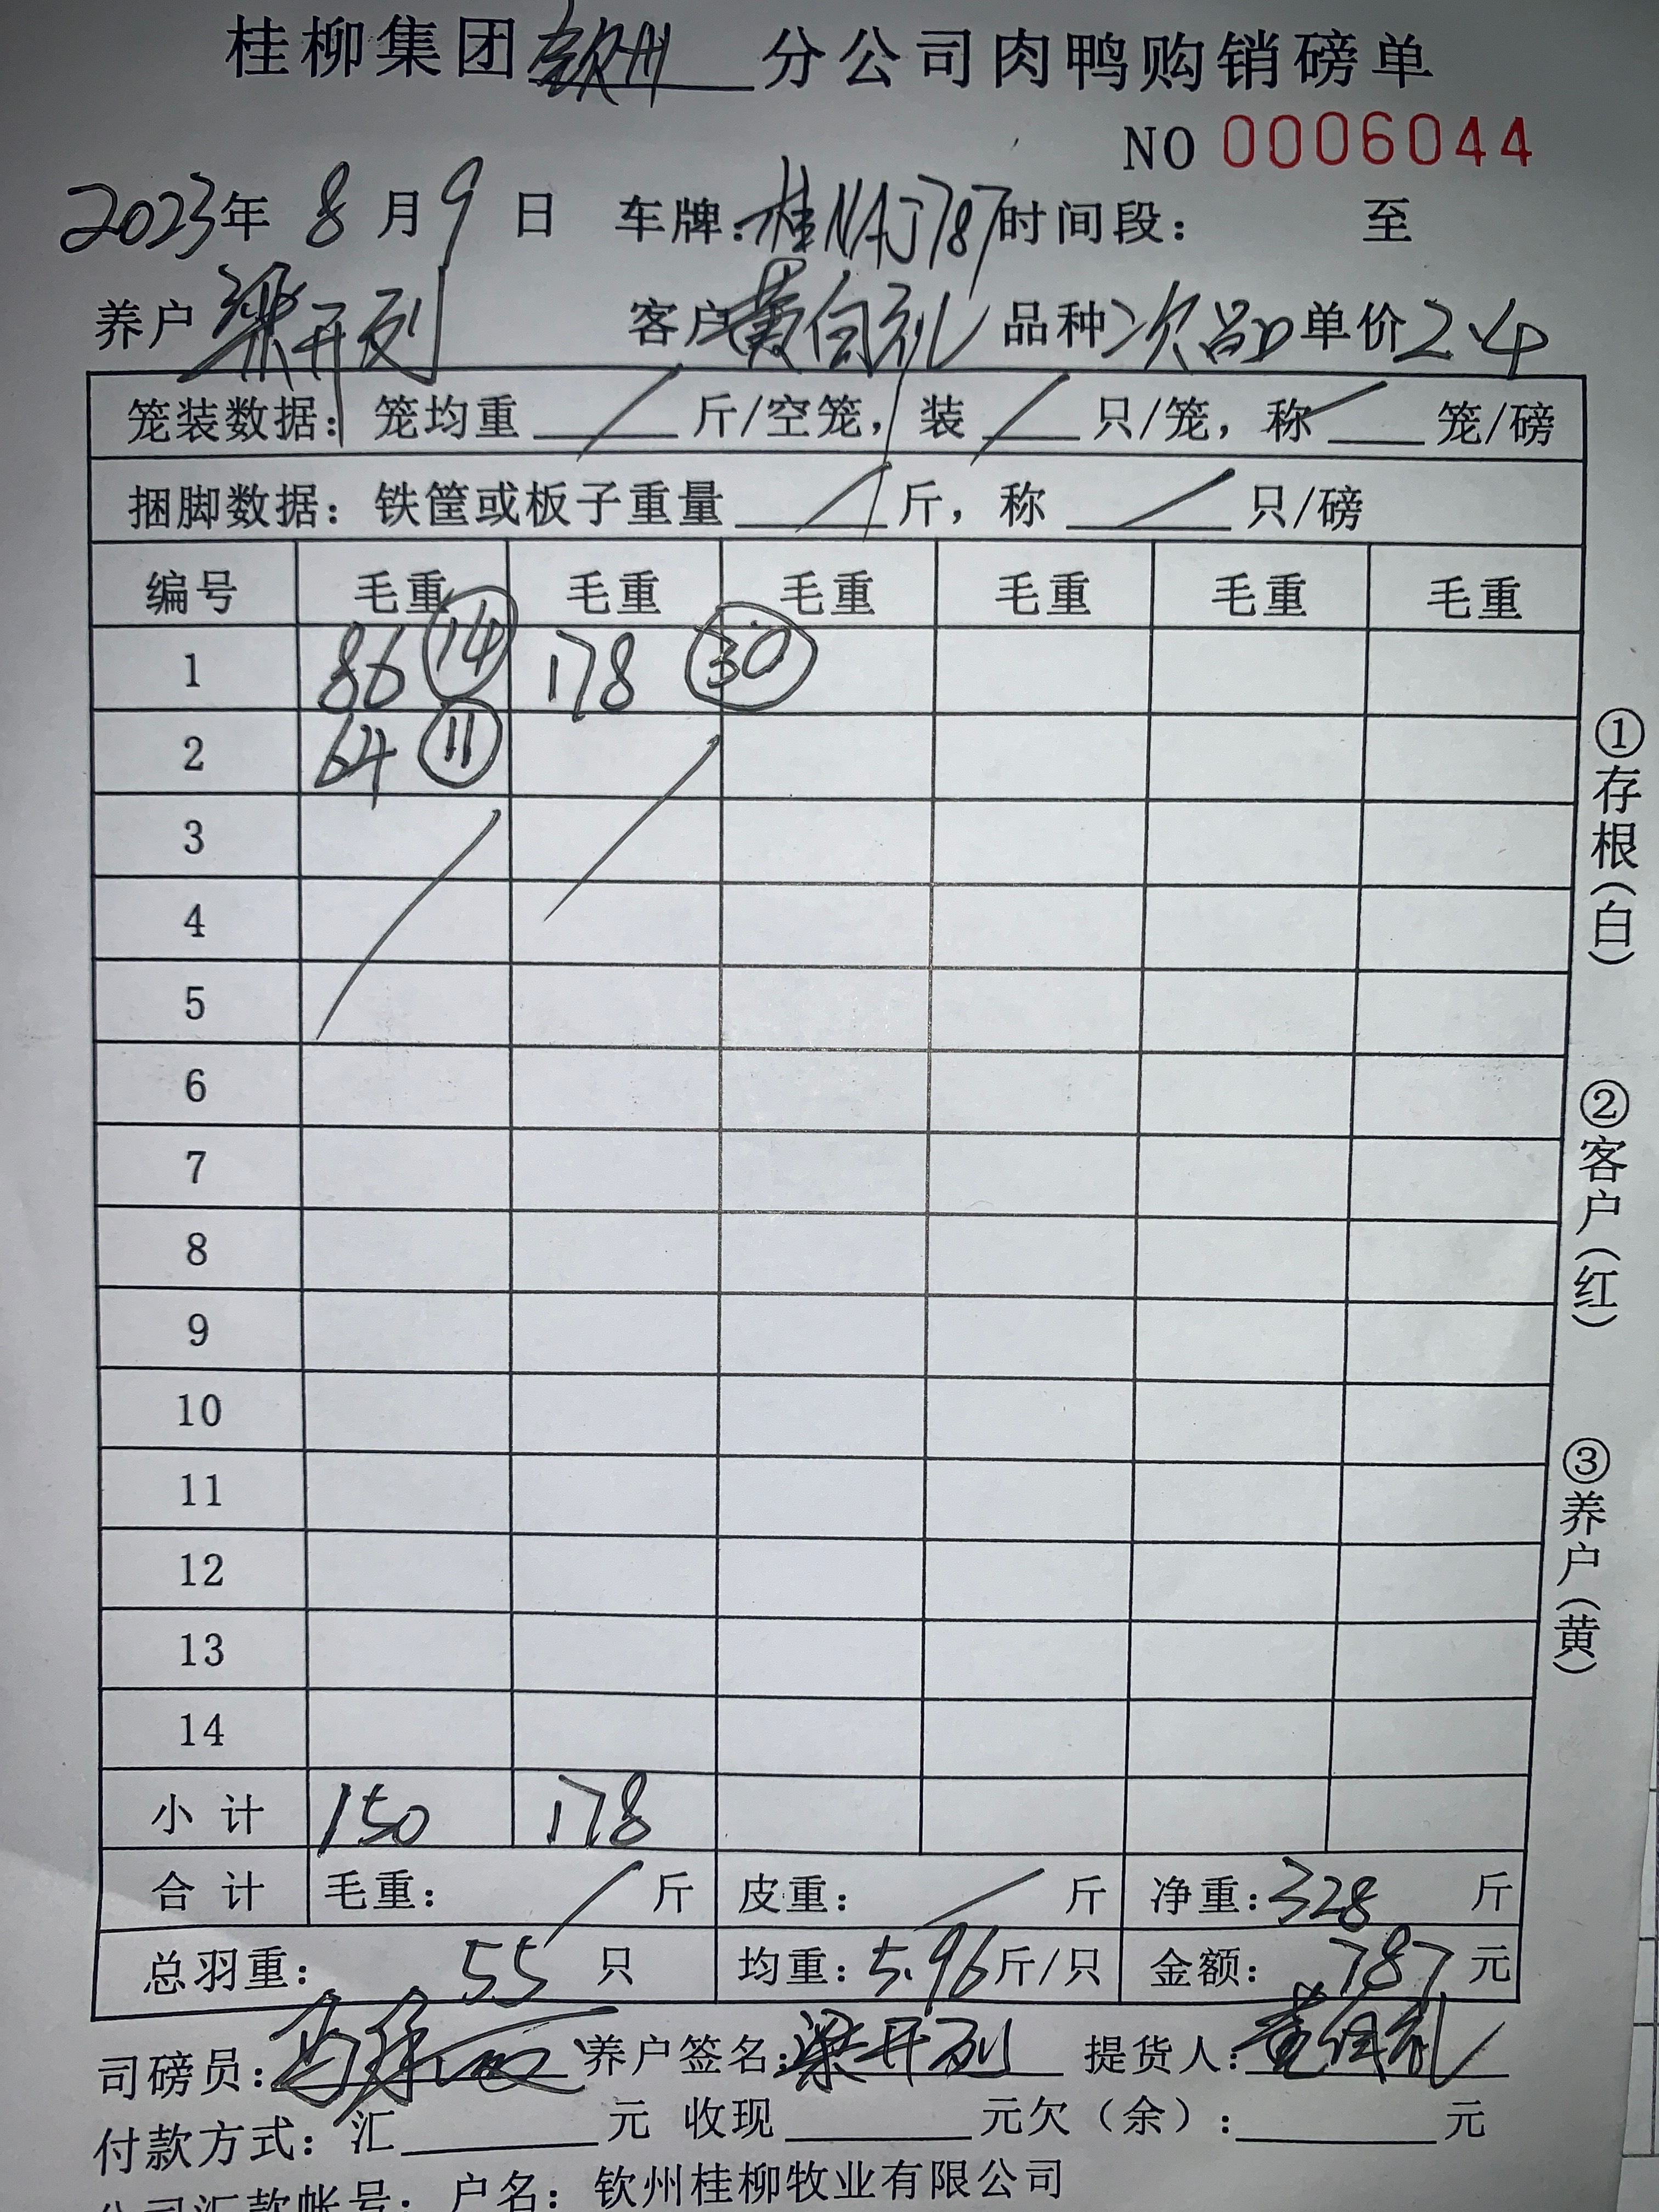 桂柳集团钦州分公司肉鸭购销磅单
NO 0006044
2023年 8月9日 车牌:桂NAJ787 时间段: 至
养户 梁开列 客户 黄自礼 品种 次品 单价 2.4
笼装数据: 笼均重 / 斤/空笼, 装 / 只/笼, 称 / 笼/磅
捆脚数据: 铁筐或板子重量 / 斤, 称 / 只/磅
编号 毛重 毛重 毛重 毛重 毛重 毛重
1 86 ⑭ 178 ㉚
2 64 ⑪
3
4
5
6
7
8
9
10
11
12
13
14
小计 150 178
合计 毛重: / 斤 皮重: / 斤 净重: 328 斤
总羽重: 55 只 均重: 5.96 斤/只 金额: 787 元
司磅员: 养户签名: 梁开列 提货人:
付款方式: 汇 元 收现 元欠(余): 元
公司汇款帐号: 户名: 钦州桂柳牧业有限公司
①存根(白)
②客户(红)
③养户(黄)